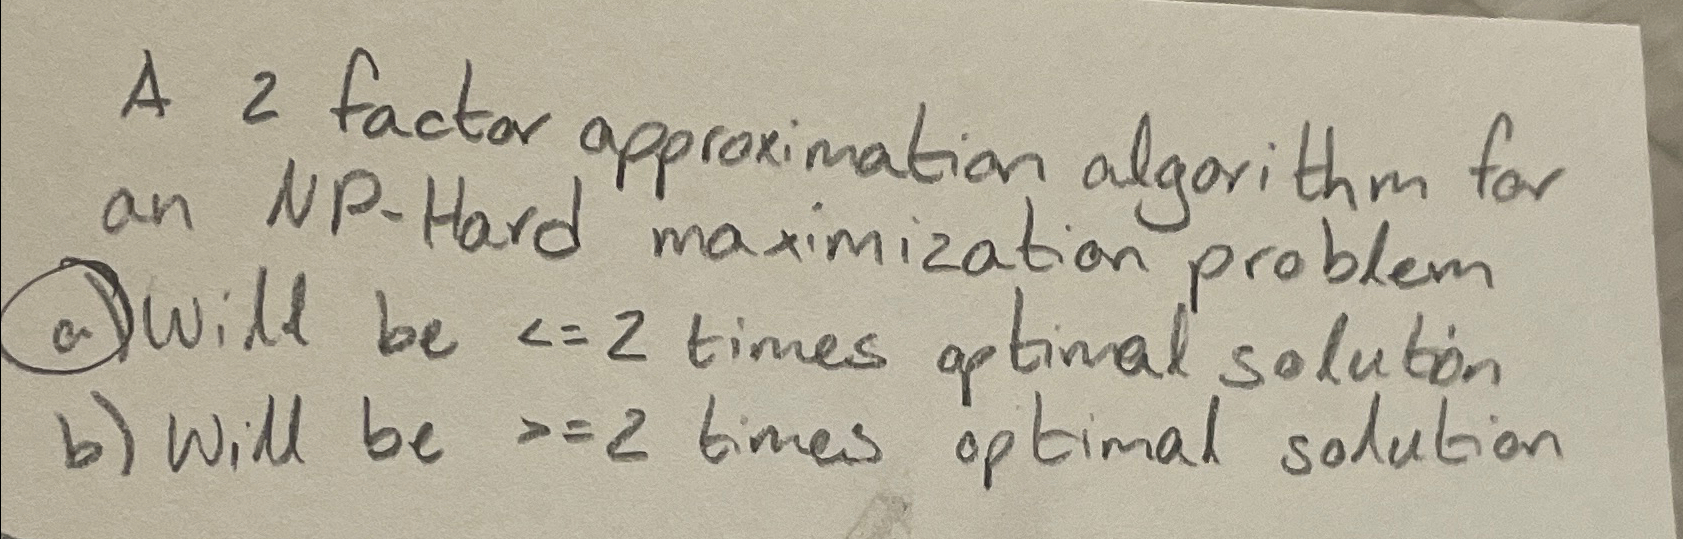 A 2 factor approximation algorithm for
an NP-Hard maximization problem
a) Will be <= 2 times optimal solution
b) Will be >= 2 times optimal solution